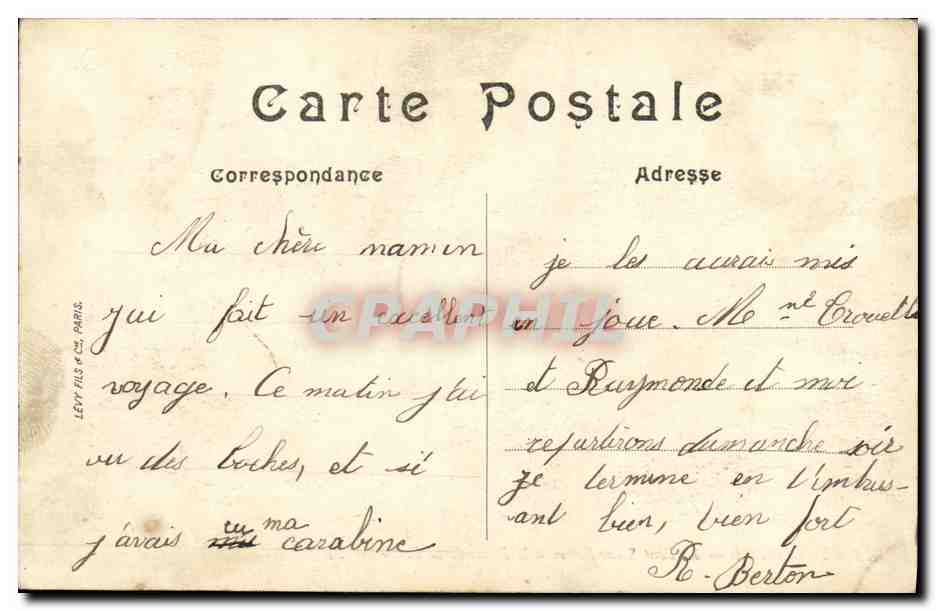 Carte Postale
Correspondance
Adresse
LÉVY FILS & Cie, PARIS.
CPAPHIL
Ma chère maman
j'ai fait un excellent
voyage. Ce matin j'ai
vu des boches, et si
j'avais eu ma carabine
je les aurais mis
en joue. M né
et Raymonde et moi
repartirons dumanche soir
Je termine en t'embras-
ant bien, bien fort
R. Berton